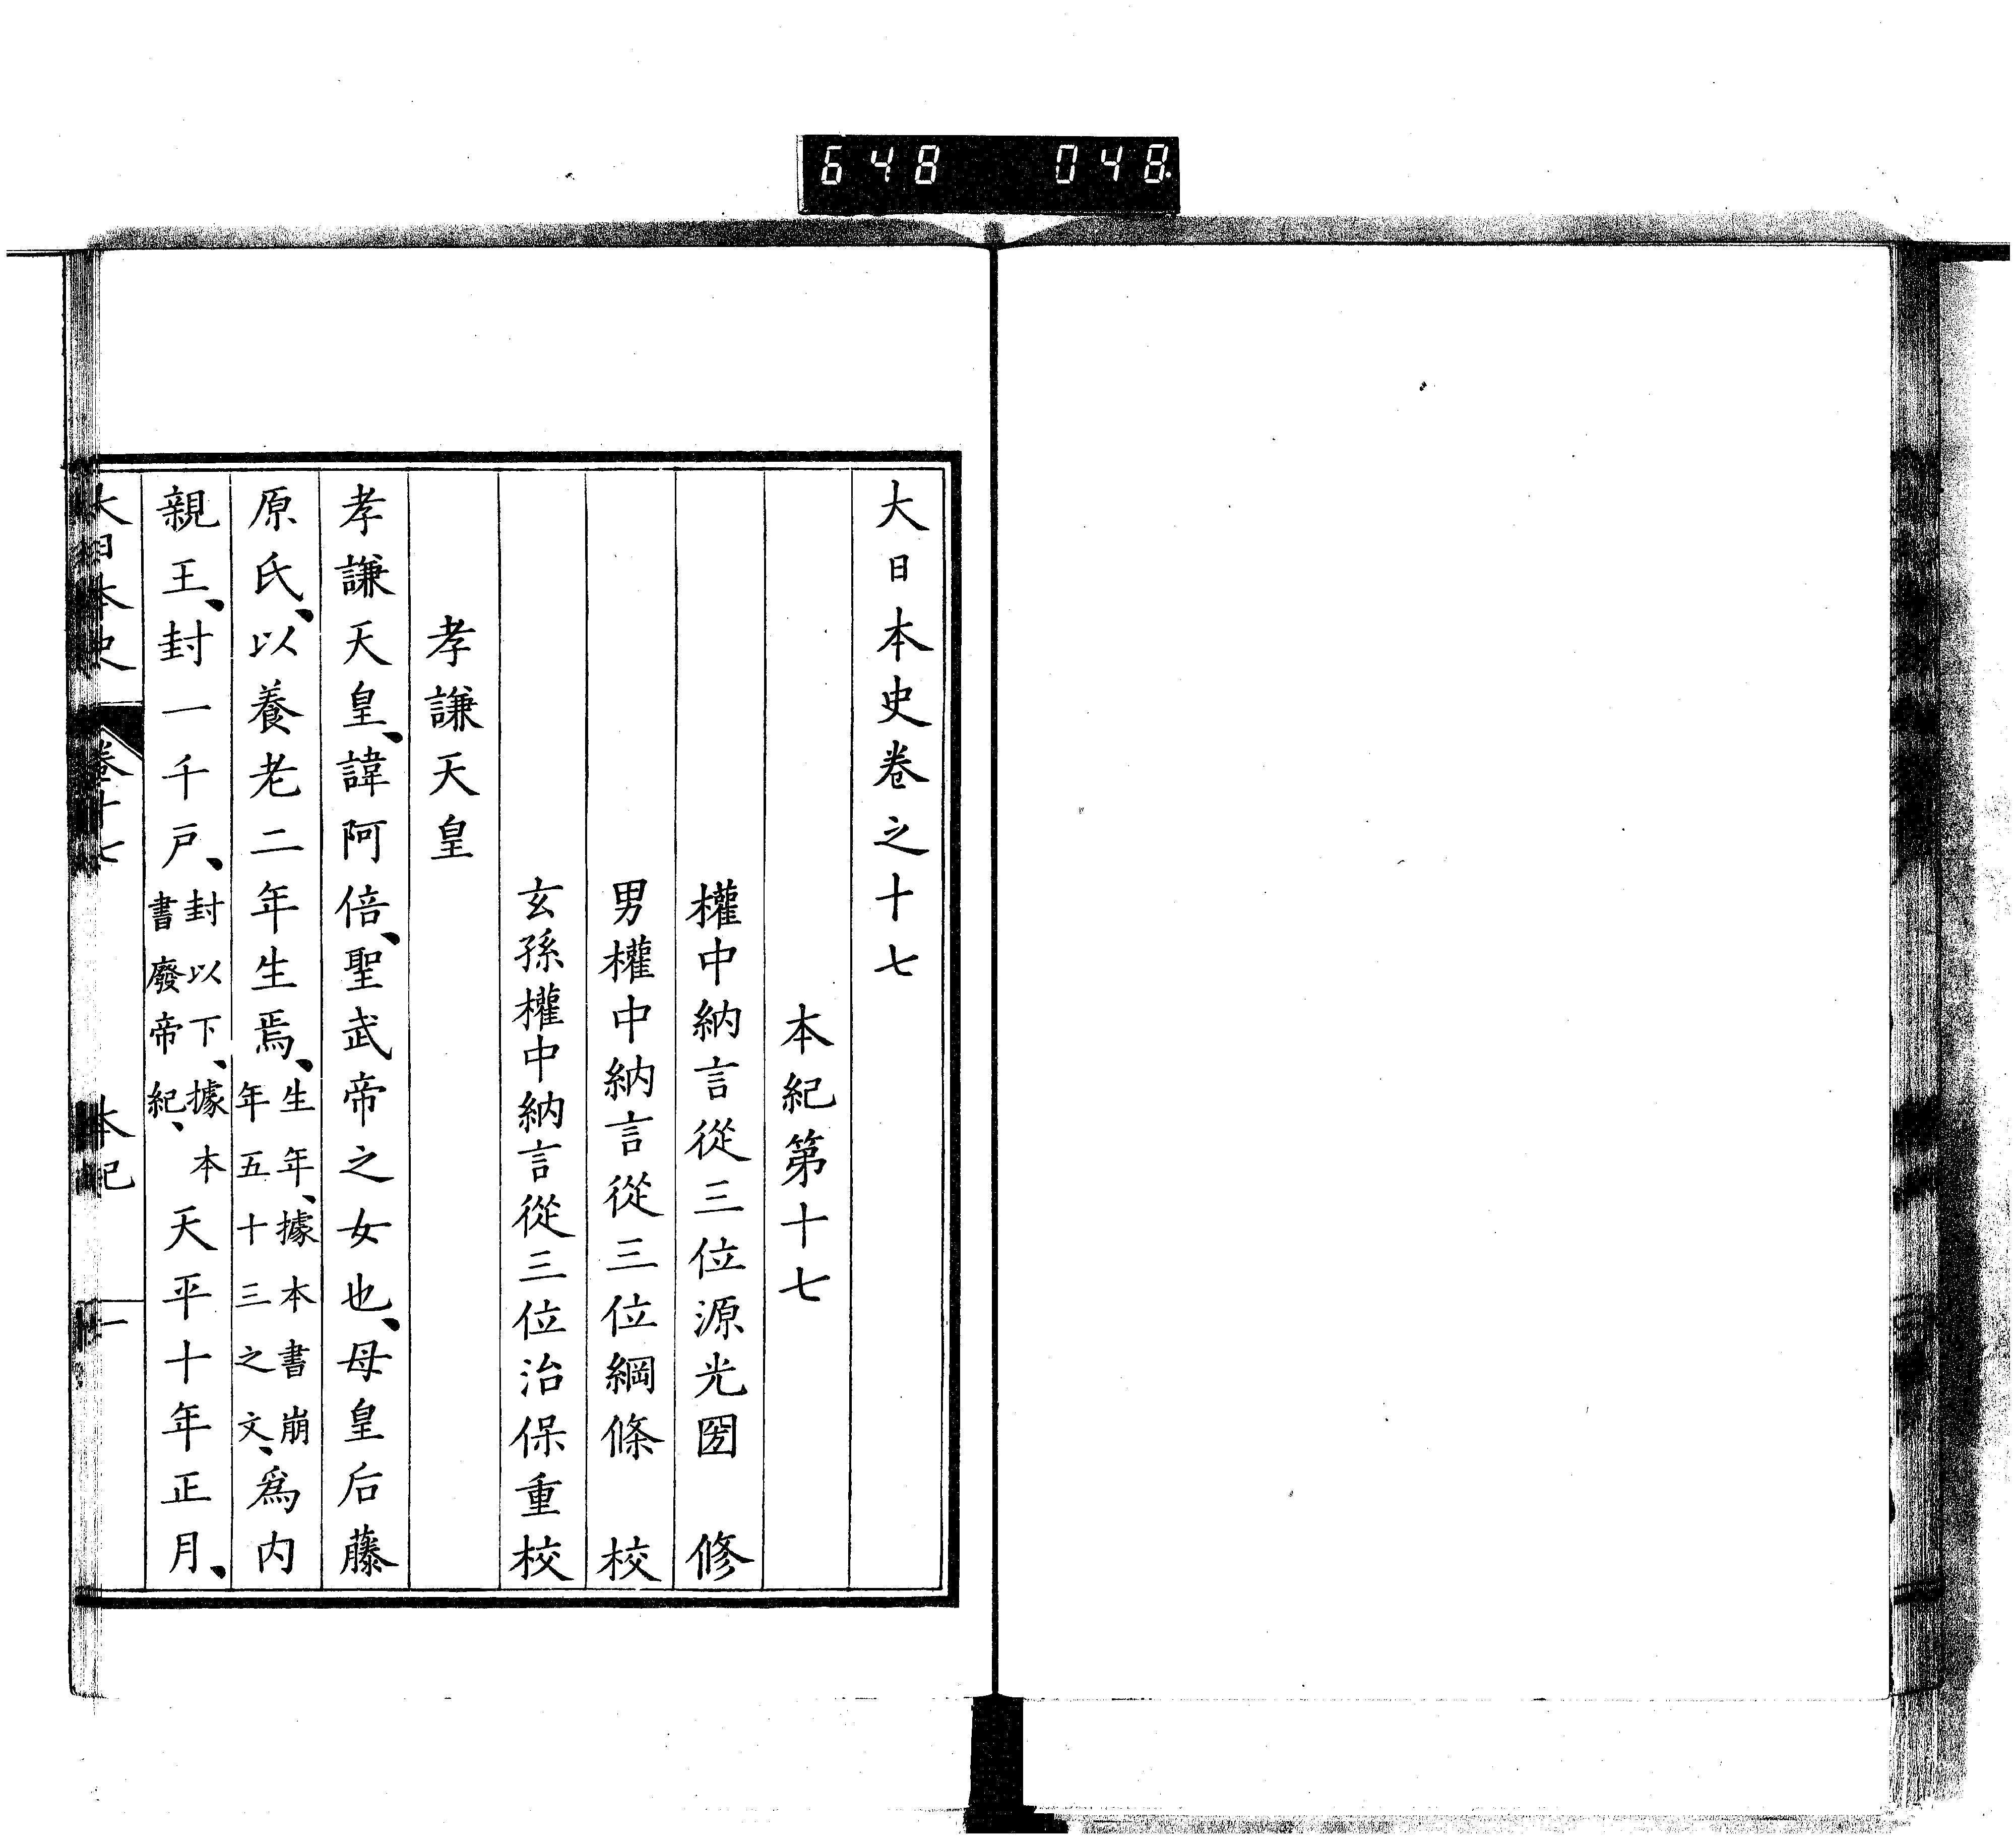 648 048.
大日本史卷之十七
本紀第十七
權中納言從三位源光圀 修
男權中納言從三位綱條 校
玄孫權中納言從三位治保重校
孝謙天皇
孝謙天皇、諱阿倍、聖武帝之女也、母皇后藤
原氏、以養老二年生焉、生年、據本書崩年五十三之文、爲内
親王、封一千戸、封以下、據本書廢帝紀、天平十年正月、
大日本史 卷十七 本紀 一